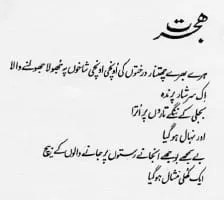 ہجرت
ہرے بھرے چھتنار درختوں کی اونچی اونچی شاخوں پہ جھولا جھولنے والا
اک سرشار پرندہ
بجلی کے ننگے تاروں پر اترا
اور نہال ہو گیا
بے سمجھے بوجھے انجانے رستوں پر جانے والوں کے بیچ
ایک مثال ہو گیا